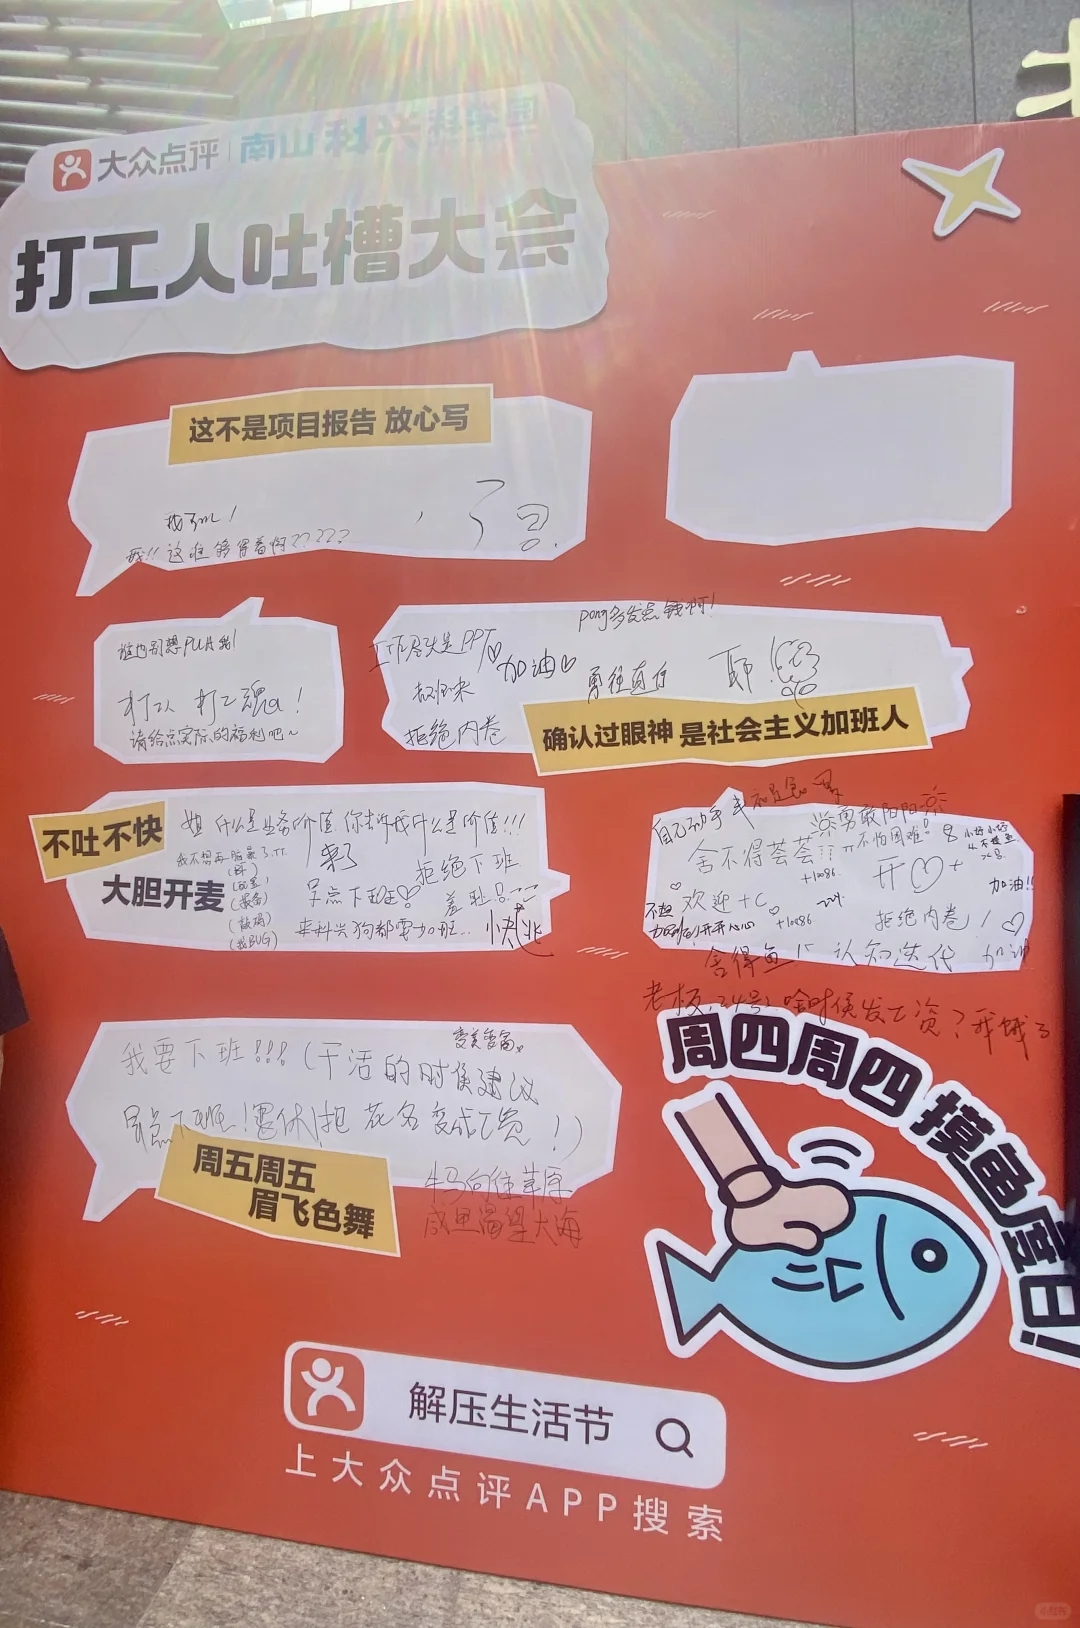 大众点评 南山科兴科学园
打工人吐槽大会
这不是项目报告 放心写
谁也别想PUA我!
打工人 打工魂a!
请给点实际的福利吧~
pong多发点钱啊!
工作尽头是PPT
加油♡
勇往直前
拒绝内卷
确认过眼神 是社会主义加班人
不吐不快
大胆开麦
姐 什么是业务价值 你告诉我什么是价值!!!
来了
拒绝下班
早点下班
羞耻
(敲码)
(改BUG)
来科兴狗都要加班..
快逃
自己动手
勇敢
不怕困难
舍不得荟荟
+10086
开♡+
加油!!
欢迎+C
+10086
拒绝内卷!
舍得鱼
认知迭代
加油
老板,24号,啥时候发工资?我饿了
我要下班!!!(干活的时候建议
早点下班!退休!把花名变成工资!)
牛马向往草原
咸鱼渴望大海
周五周五
眉飞色舞
周四周四 摸鱼度日!
解压生活节
上大众点评APP搜索
小红书